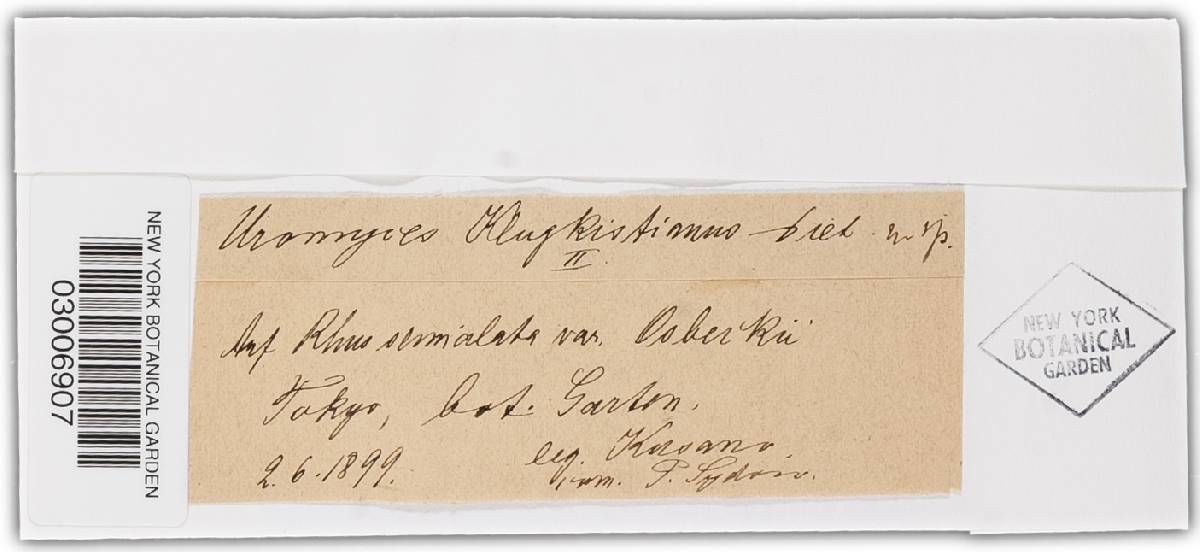 Uromyces Klugkistianus Diet. n. sp.
II.
Auf Rhus semialata var. Osbeckii
Tokyo, bot. Garten.
2.6.1899.
leg. Kusano.
com. P. Sydow.
NEW YORK BOTANICAL GARDEN
03006907
NEW YORK
BOTANICAL
GARDEN